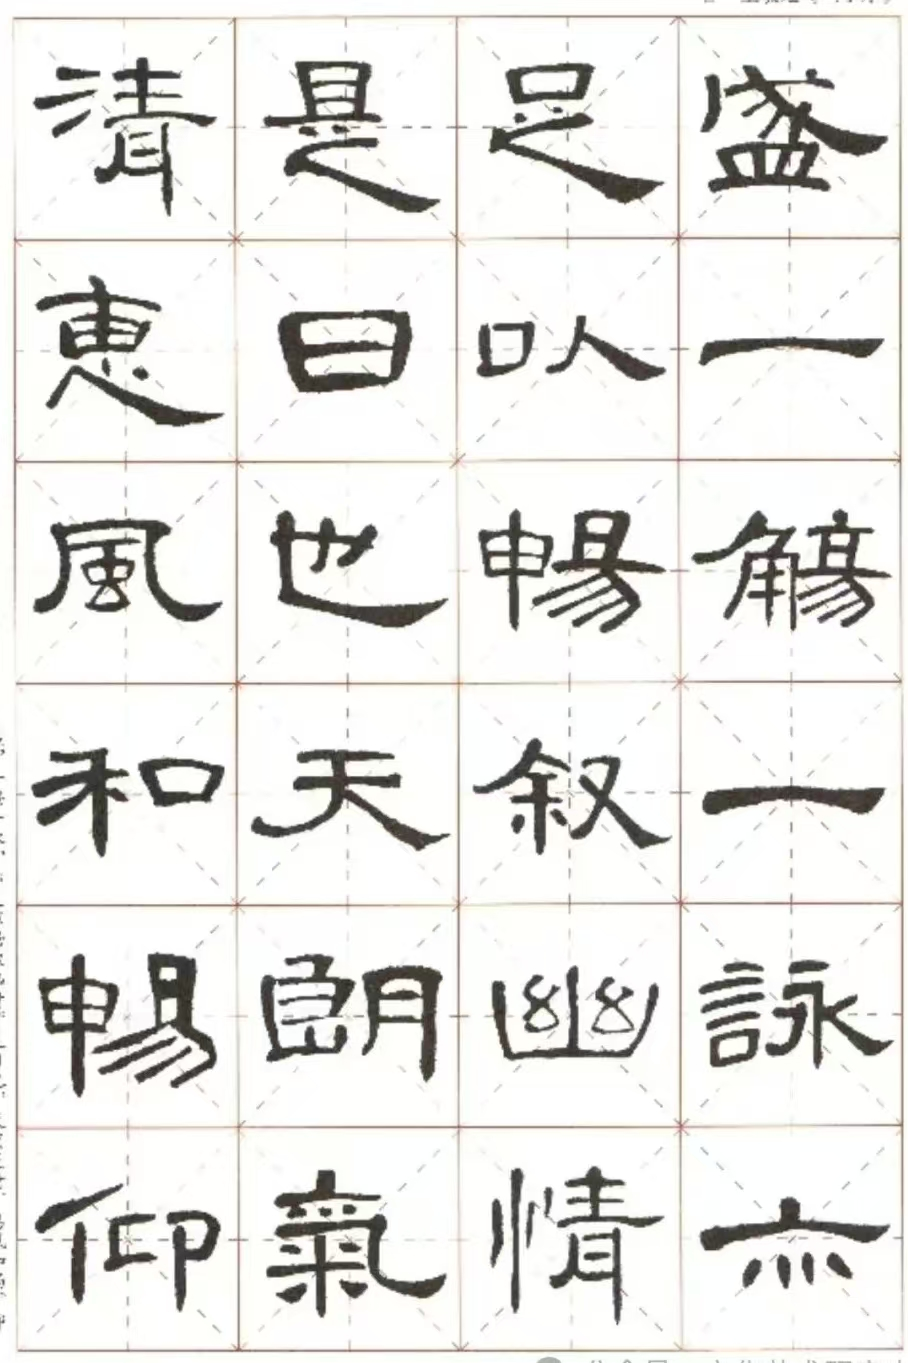 盛一觴一詠亦
足以暢叙幽情
是日也天朗氣
清惠風和暢仰